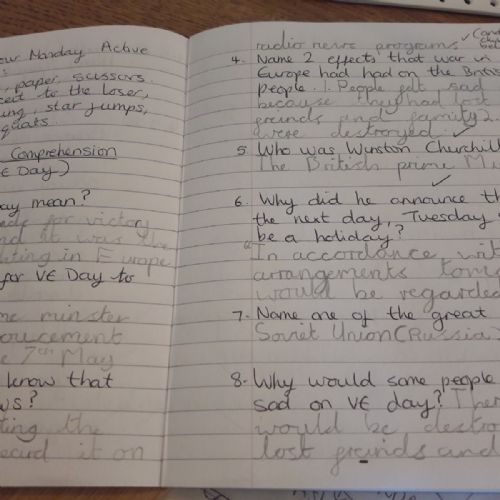 our Monday Active
, paper, scissors
to the loser,
ing, star jumps,
squats.
Comprehension
E Day)
ay mean?
for victory
nd it was the
hting in Europe
for VE Day to
me minster
oucement
e 7th May
know that
ws?
ting the
eard it on
radio news programs
4. Name 2 effects that war in
Europe had had on the Briti
people. 1. People felt sad
because they had lost
freinds and family 2.
were destroyed.
5 Who was Winston Churchill
The British prime Mi
6. Why did he announce th
the next day, Tuesday
be a holiday?
"In accordance with
arrangements tomo
would be regarded
7. Name one of the great
Soviet Union (Russia
8. Why would some people
sad on VE day? Ther
would be destro
lost freinds and